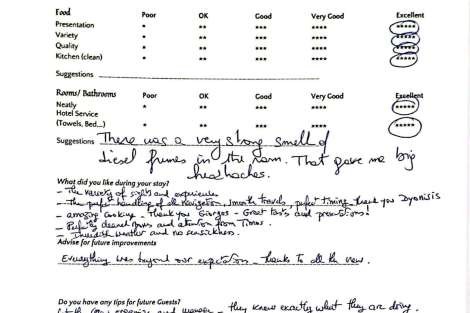 Food Poor OK Good Very Good Excellent
Presentation * ** *** **** *****
Variety * ** *** **** *****
Quality * ** *** **** *****
Kitchen (clean) * ** *** **** *****
Suggestions
Rooms/ Bathrooms Poor OK Good Very Good Excellent
Neatly * ** *** **** *****
Hotel Service
(Towels, Bed...) * ** *** **** *****
Suggestions There was a very strong smell of
diesel fumes in the room. That gave me big
headaches.
What did you like during your stay?
- The variety of sights and experiences
- The perfect handling of all navigation, smooth travels, perfect timing - thank you Dyonisis
- amazing cooking - Thank you Giorgos - Great tasts and
- Perfectly cleaned and attention from
- weather and no seasickness.
Advise for future improvements
Everything was beyond our expectation - thanks to all the crew.
Do you have any tips for future Guests?
organize and - they know exactly what they are doing.